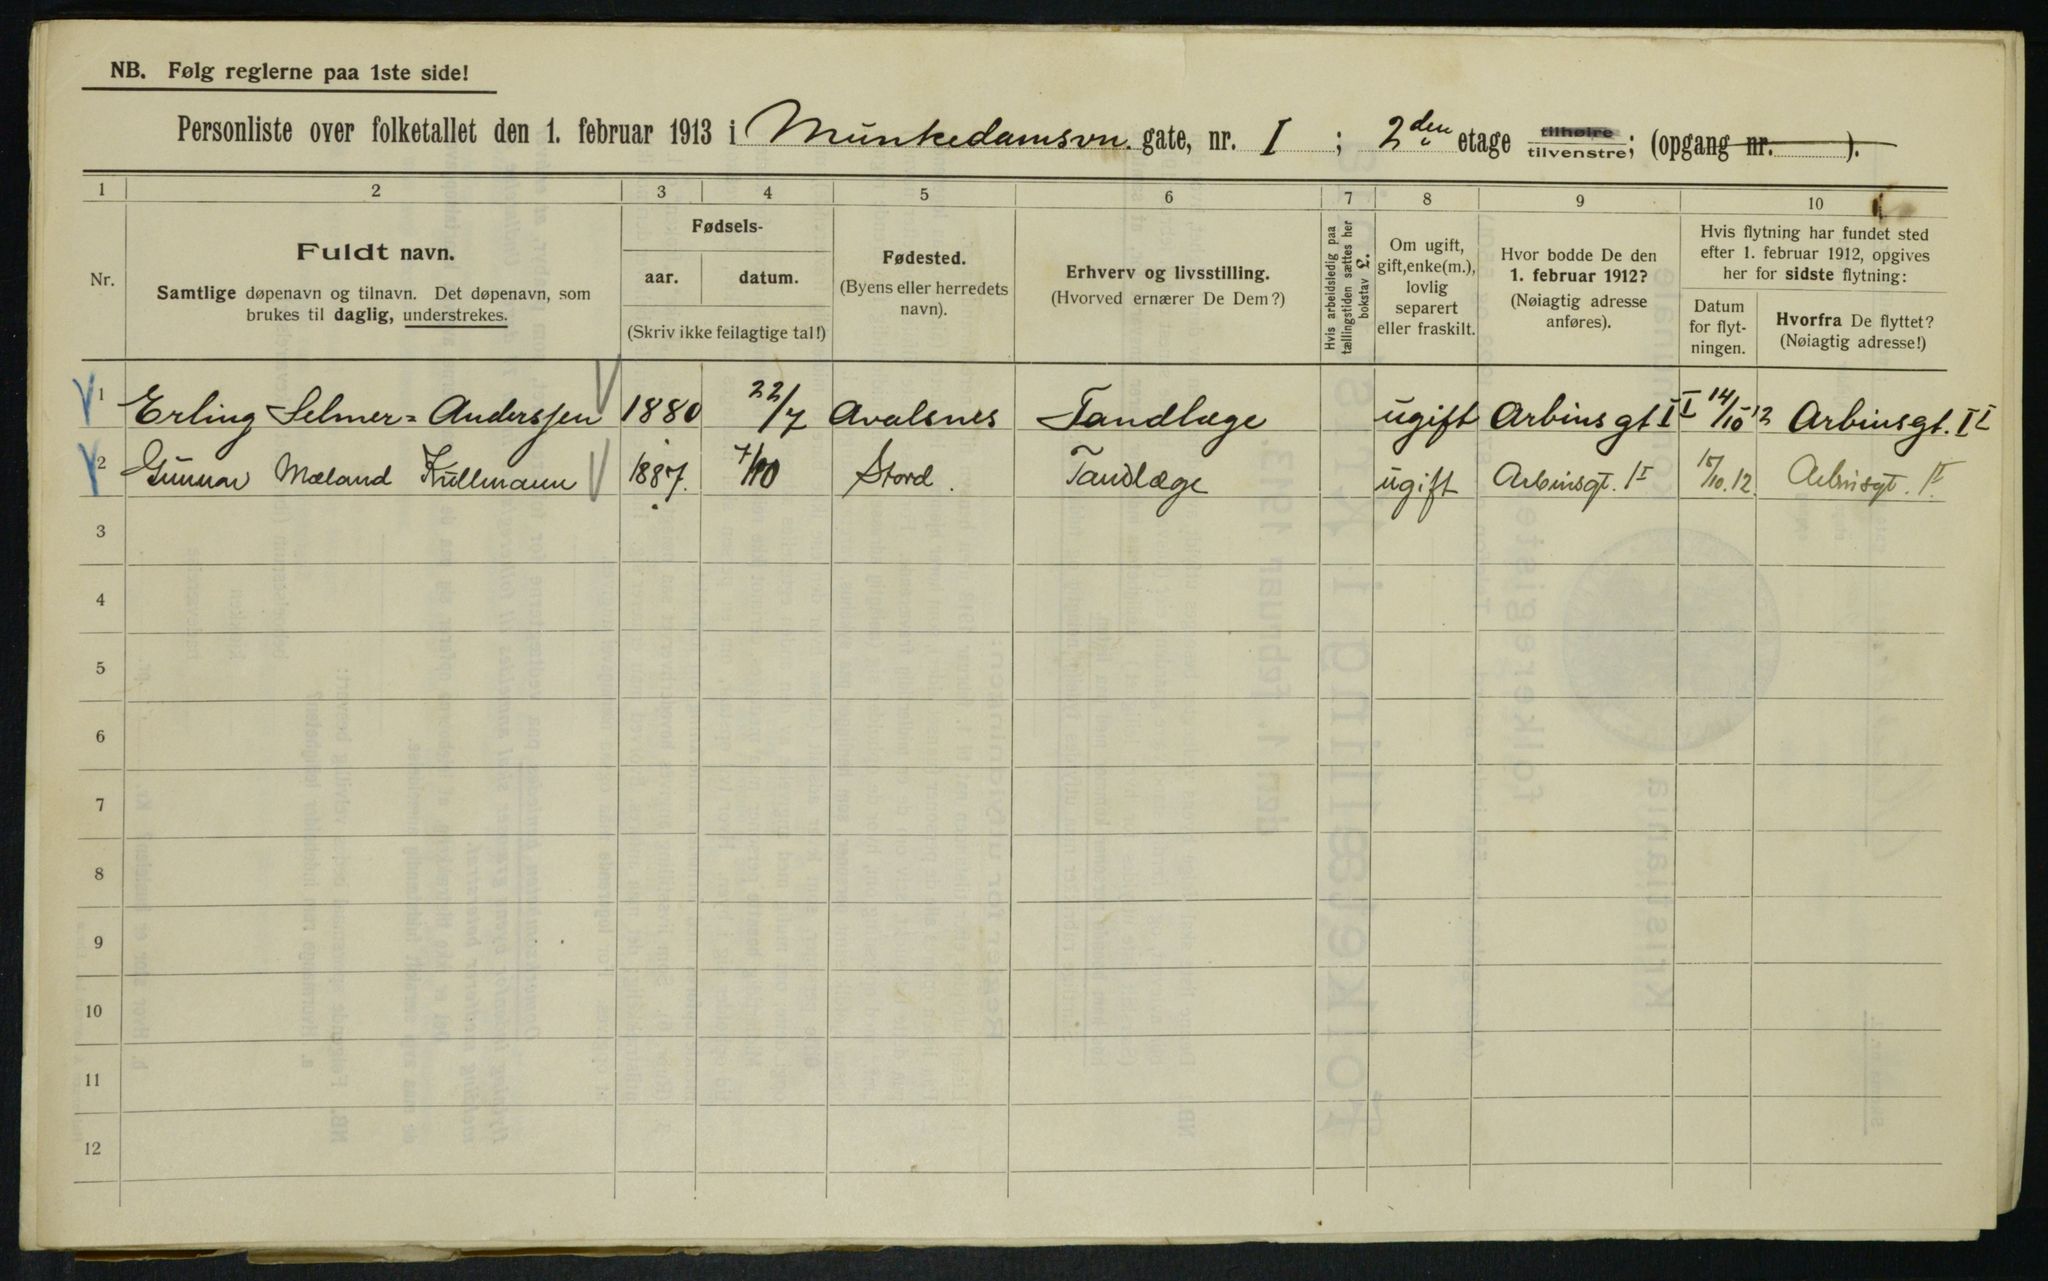 NB. Følg reglerne paa 1ste side!
Personliste over folketallet den 1. februar 1913 i Munkedamsvn. gate, nr. I ; 2den etage tilhøire tilvenstre; (opgang nr. ).
1 2 3 4 5 6 7 8 9 10
Nr.
Fuldt navn.
Samtlige døpenavn og tilnavn. Det døpenavn, som
brukes til daglig, understrekes.
Fødsels-
aar. datum.
(Skriv ikke feilagtige tal!)
Fødested.
(Byens eller herredets
navn).
Erhverv og livsstilling.
(Hvorved ernærer De Dem?)
Hvis arbeidsledig paa
tællingstiden sættes her
bokstav L.
Om ugift,
gift, enke(m.),
lovlig
separert
eller fraskilt.
Hvor bodde De den
1. februar 1912?
(Nøiagtig adresse
anføres).
Hvis flytning har fundet sted
efter 1. februar 1912, opgives
her for sidste flytning:
Datum
for flyt-
ningen.
Hvorfra De flyttet?
(Nøiagtig adresse!)
1 Erling Selmer=Anderssen 1880 22/7 Avalsnes Tandlæge ugift Arbinsgt I I 14/10 12 Arbinsgt. I I
2 Gunnar Mæland Kullmann 1887. 7/10 Stord. Tandlæge ugift Arbinsgt. 1 I 15/10.12. Arbinsgt. 1 I.
3
4
5
6
7
8
9
10
11
12